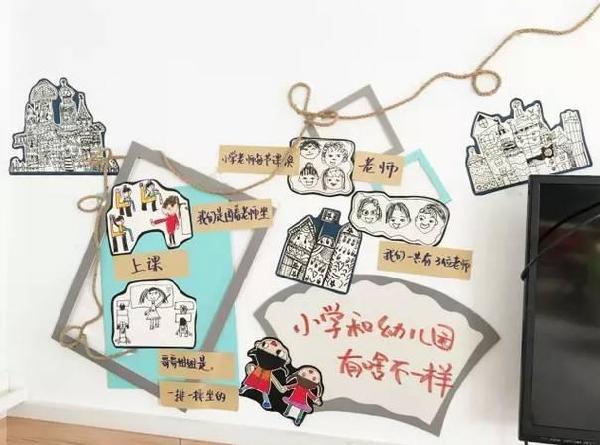 小学老师每节课
老师
我们是围着老师坐
我们一共有3位老师
上课
哥哥姐姐是
一排一排坐的
小学和幼儿园
有啥不一样